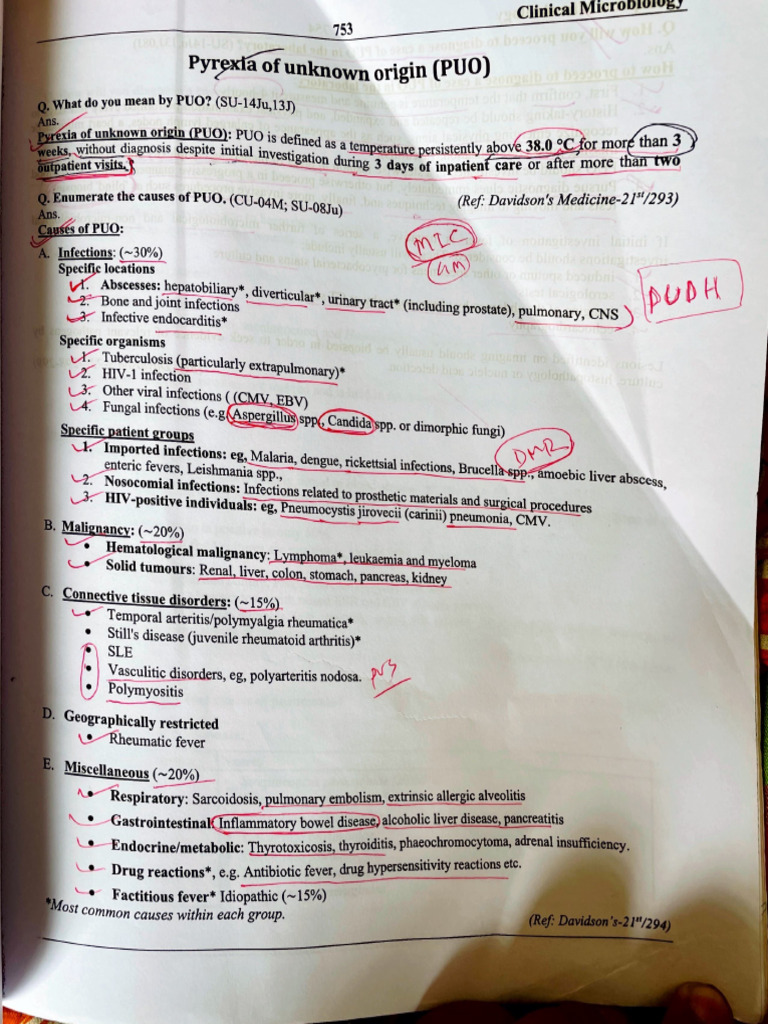 Clinical Microbiology
753
Pyrexia of unknown origin (PUO)
Q. What do you mean by PUO? (SU-14Ju,13J)
Ans.
Pyrexia of unknown origin (PUO): PUO is defined as a temperature persistently above 38.0 °C for more than 3
weeks, without diagnosis despite initial investigation during 3 days of inpatient care or after more than two
outpatient visits.
Q. Enumerate the causes of PUO. (CU-04M; SU-08Ju)
(Ref: Davidson's Medicine-21st/293)
Ans.
Causes of PUO:
A. Infections: (~30%)
MIC
GM
Specific locations
1. Abscesses: hepatobiliary*, diverticular*, urinary tract* (including prostate), pulmonary, CNS
DUDH
2. Bone and joint infections
3. Infective endocarditis*
Specific organisms
1. Tuberculosis (particularly extrapulmonary)*
2. HIV-1 infection
3. Other viral infections ((CMV, EBV)
4. Fungal infections (e.g. Aspergillus spp., Candida spp. or dimorphic fungi)
Specific patient groups
DMR
1. Imported infections: eg, Malaria, dengue, rickettsial infections, Brucella spp., amoebic liver abscess,
enteric fevers, Leishmania spp.,
2. Nosocomial infections: Infections related to prosthetic materials and surgical procedures
3. HIV-positive individuals: eg, Pneumocystis jirovecii (carinii) pneumonia, CMV.
B. Malignancy: (~20%)
• Hematological malignancy: Lymphoma*, leukaemia and myeloma
• Solid tumours: Renal, liver, colon, stomach, pancreas, kidney
C. Connective tissue disorders: (~15%)
• Temporal arteritis/polymyalgia rheumatica*
• Still's disease (juvenile rheumatoid arthritis)*
• SLE
• Vasculitic disorders, eg, polyarteritis nodosa.
• Polymyositis
D. Geographically restricted
• Rheumatic fever
E. Miscellaneous (~20%)
• Respiratory: Sarcoidosis, pulmonary embolism, extrinsic allergic alveolitis
• Gastrointestinal: Inflammatory bowel disease, alcoholic liver disease, pancreatitis
• Endocrine/metabolic: Thyrotoxicosis, thyroiditis, phaeochromocytoma, adrenal insufficiency.
• Drug reactions*, e.g. Antibiotic fever, drug hypersensitivity reactions etc.
• Factitious fever* Idiopathic (~15%)
*Most common causes within each group.
(Ref: Davidson's-21st/294)